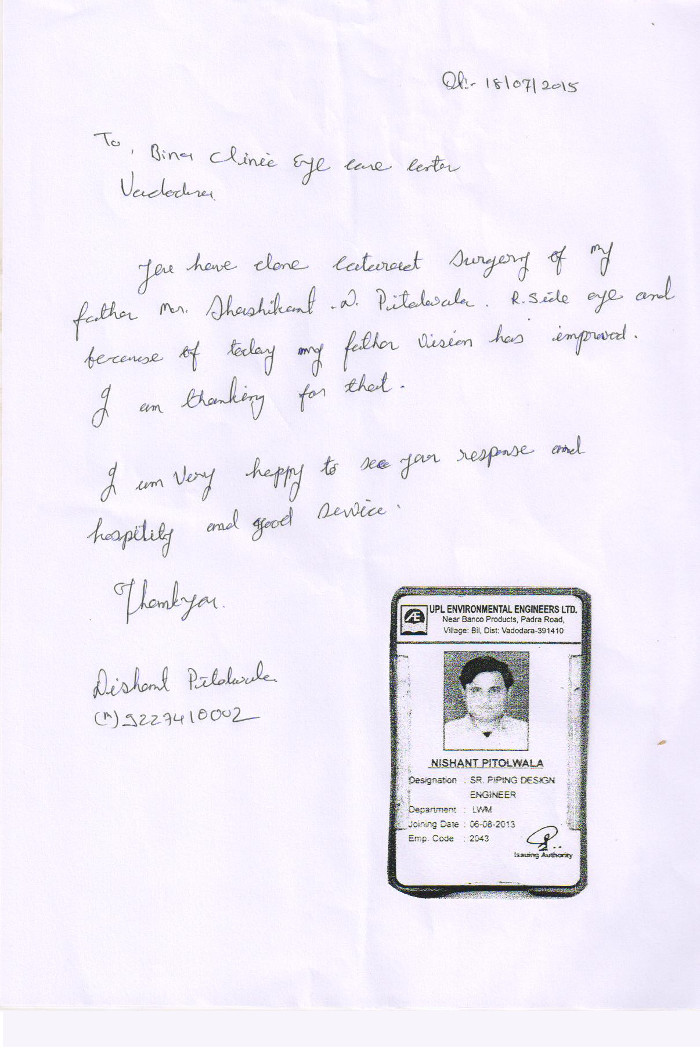 Dt:- 18/07/2015
To, Bina Clinic Eye care center
Vadodara
You have done cataract surgery of my
father Mr. Shashikant .N. Pitolwala. R. side eye and
because of today my father vision has improved.
I am thanking for that.
I am very happy to see your response and
hospitility and good service.
Thankyou.
Nishant Pitolwala
(M) 9227410002
UPL ENVIRONMENTAL ENGINEERS LTD.
Near Banco Products, Padra Road,
Village: Bil, Dist: Vadodara-391410
NISHANT PITOLWALA
Designation : SR. PIPING DESIGN
ENGINEER
Department : LWM
Joining Date : 06-08-2013
Emp. Code : 2043
Issuing Authority